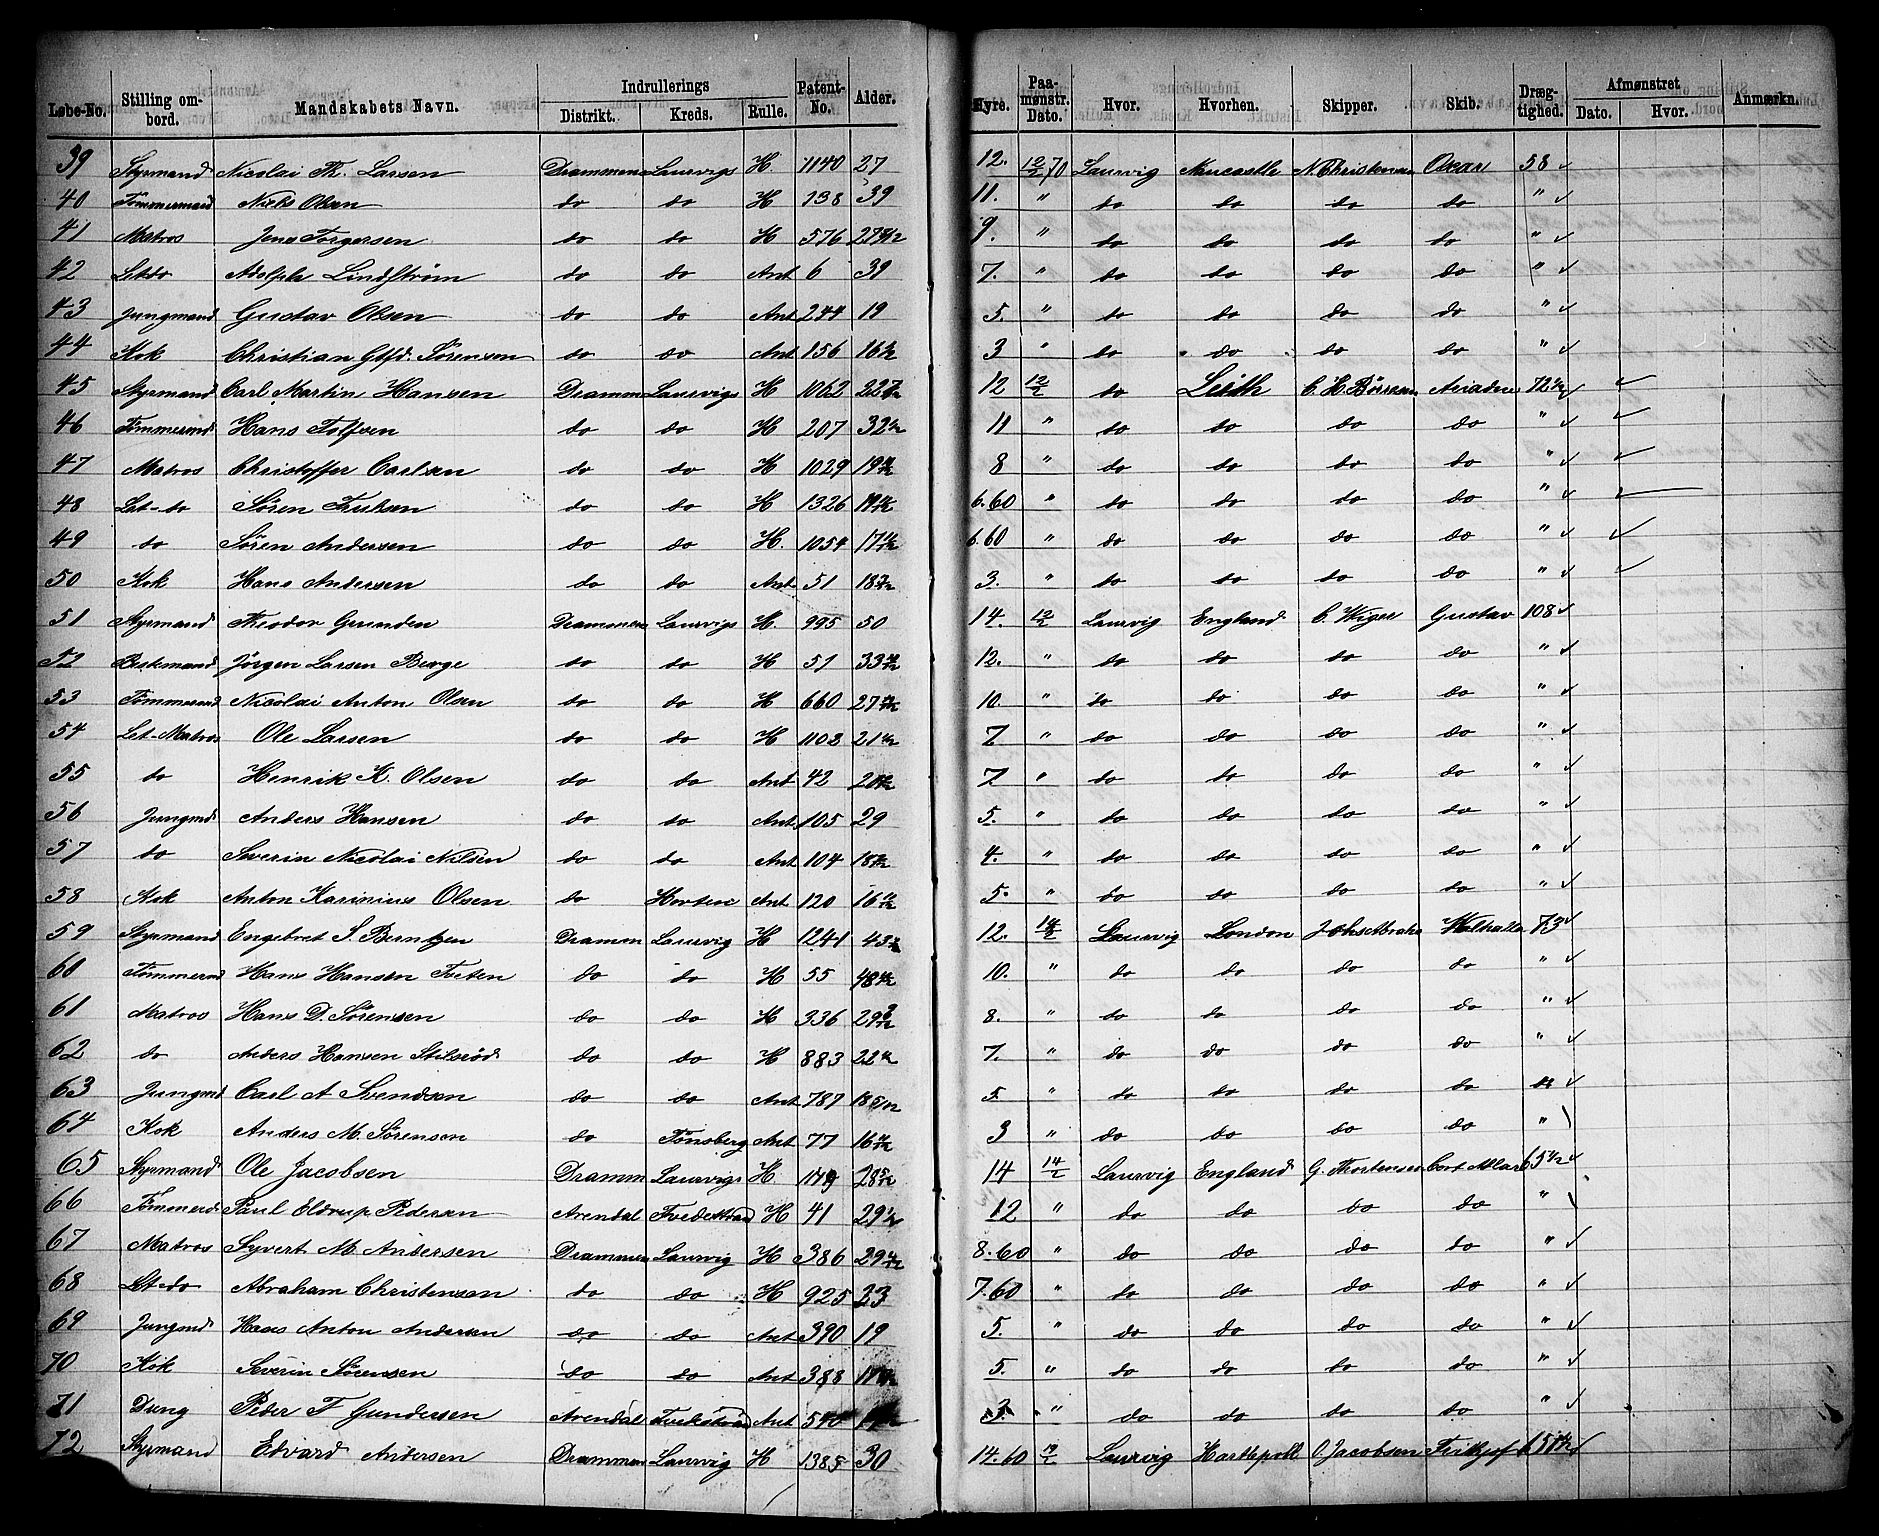 Løbe-No. | Stilling ombord. | Mandskabets Navn. | Indrullerings Distrikt. | Kreds. | Rulle. | Patent-No. | Alder. | Hyre. | Paamønstr. Dato. | Hvor. | Hvorhen. | Skipper. | Skib. | Drægtighed. | Afmønstret Dato. | Hvor. | Anmærkn.
39 Styrmand Nicolai Th. Larsen Drammens Laurvigs H. 1140 27 12. 12/2 70 Laurvig Newcastle N. Christensen Oscar 58
40 Tømmermand Niels Olsen do do H 138 39 11. " do do do do "
41 Matros Jens Torgersen do do H 576 9. " do do do do "
42 Let do Adolph Lindstrøm do do Ant 6 39 7. " do do do do "
43 Jungmand Gustav Olsen do do Ant 244 19 5. " do do do do "
44 Kok Christian Gtfd. Sørensen do do Ant 156 3 " do do do do "
45 Styrmand Carl Martin Hansen Dramm Laurvigs H 1062 12 12/2 do Leith Ariadne
46 Tømmermd Hans Tolfsen do do H 207 11 " do do do do "
47 Matros Christoffer Carlsen do do H 1029 8 " do do do do "
48 Let-do Søren do do H 1326 6.60 " do do do do "
49 do Søren Andersen do do H. 1054 6.60 " do do do do "
50 Kok Hans Andersen do do Ant 51 3. " do do do do "
51 Styrmand Theodor Drammens Laurvigs H. 995 50 14. 12/2 Laurvig England C. Wiger Gustav 108
52 Jørgen Larsen Berge do do H 51 12. " do do do do "
53 Tømmermand Nicolai Anton Olsen do do H 660 10. " do do do do "
54 Let-Matros Ole Larsen do do H 1103 7 " do do do do "
55 do Henrik K. Olsen do do Ant 42 7 " do do do do "
56 Jungmd Anders Hansen do do Ant. 105 29 5. " do do do do "
57 do Severin Nicolai Nilsen do do Ant 104 4. " do do do do "
58 Kok Anton Karinius Olsen do Horten Ant 120 5. " do do do do "
59 Styrmand Engebret S. Berntzen Drammen Laurvig H 1241 12. 14/2 Laurvig London Walhalla 73
60 Tømmermd Hans Hansen do do H 55 10. " do do do do "
61 Matros Hans D. Sørensen do do H 336 8. " do do do do "
62 do Anders Hansen do do H 883 7. " do do do do "
63 Jungmd Carl A Svendsen do do Ant 787 5. " do do do do "
64 Kok Anders M. Sørensen do Tønsberg Ant 77 3 " do do do do "
65 Styrmand Ole Jacobsen Dramm Laurvigs H 1149 14 14/2 Laurvig England G. Thortensen
66 Tømmermd Paul Eldrup Pedersen Arendal H 41 12 " do do do do "
67 Matros Syvert M. Andersen Drammen Laurvig H 386 8.60 " do do do do "
68 Let-do Abraham Christensen do do H 925 23 7.60 " do do do do "
69 Jungmd Hans Anton Andersen do do Ant 390 19 5. " do do do do "
70 Kok Severin Sørensen do do Ant 388 5. " do do do do "
71 Peder F Gundersen Arendal Ant 3. " do do do do "
72 Styrmand Edvard Andersen Drammen Laurvig H 1385 30 14.60 Laurvig Hartlepool O. Jacobsen